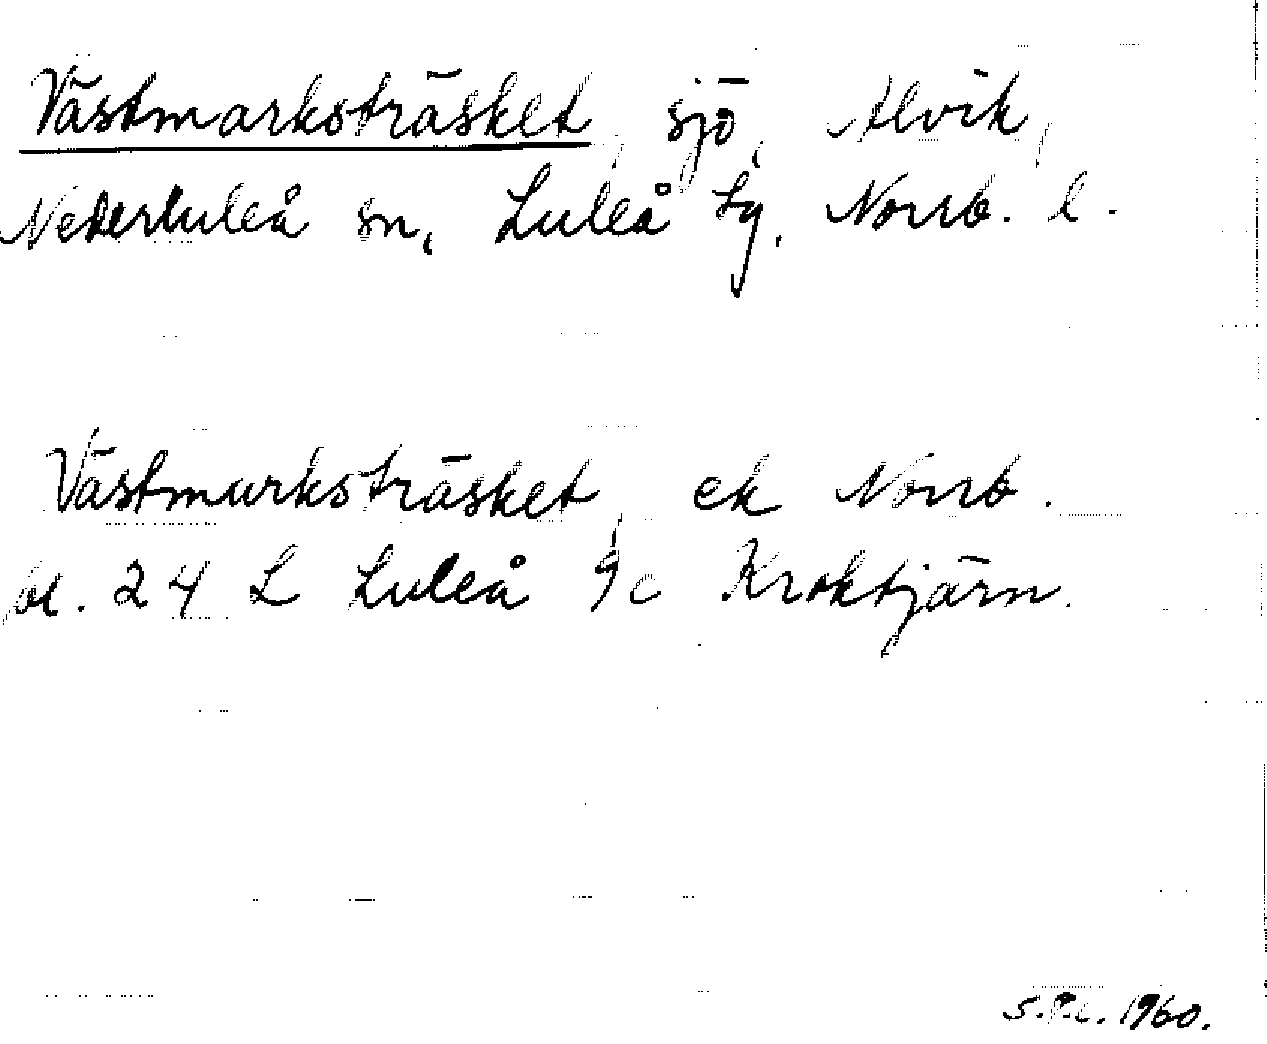 Västmarksträsket, sjö, Alvik,
Nederluleå sn, Luleå tg, Norrb. l.
Västmarksträsket, ek Norrb.
bl. 24 L Luleå 9c Kroktjärn.
S.P.L. 1960.